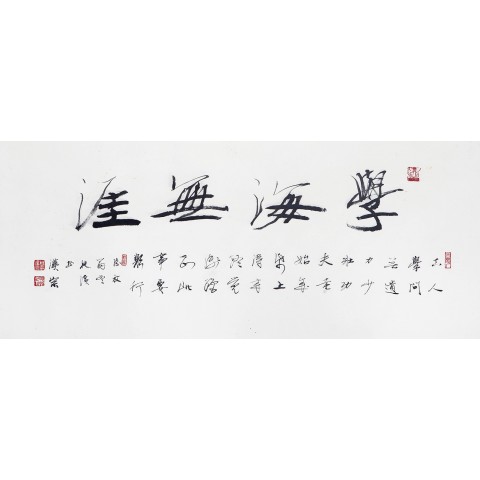 學海無涯
古人
學問
無遺
力少
壯功
夫老
始成
紙上
得來
終覺
淺絕
知此
事要
躬行